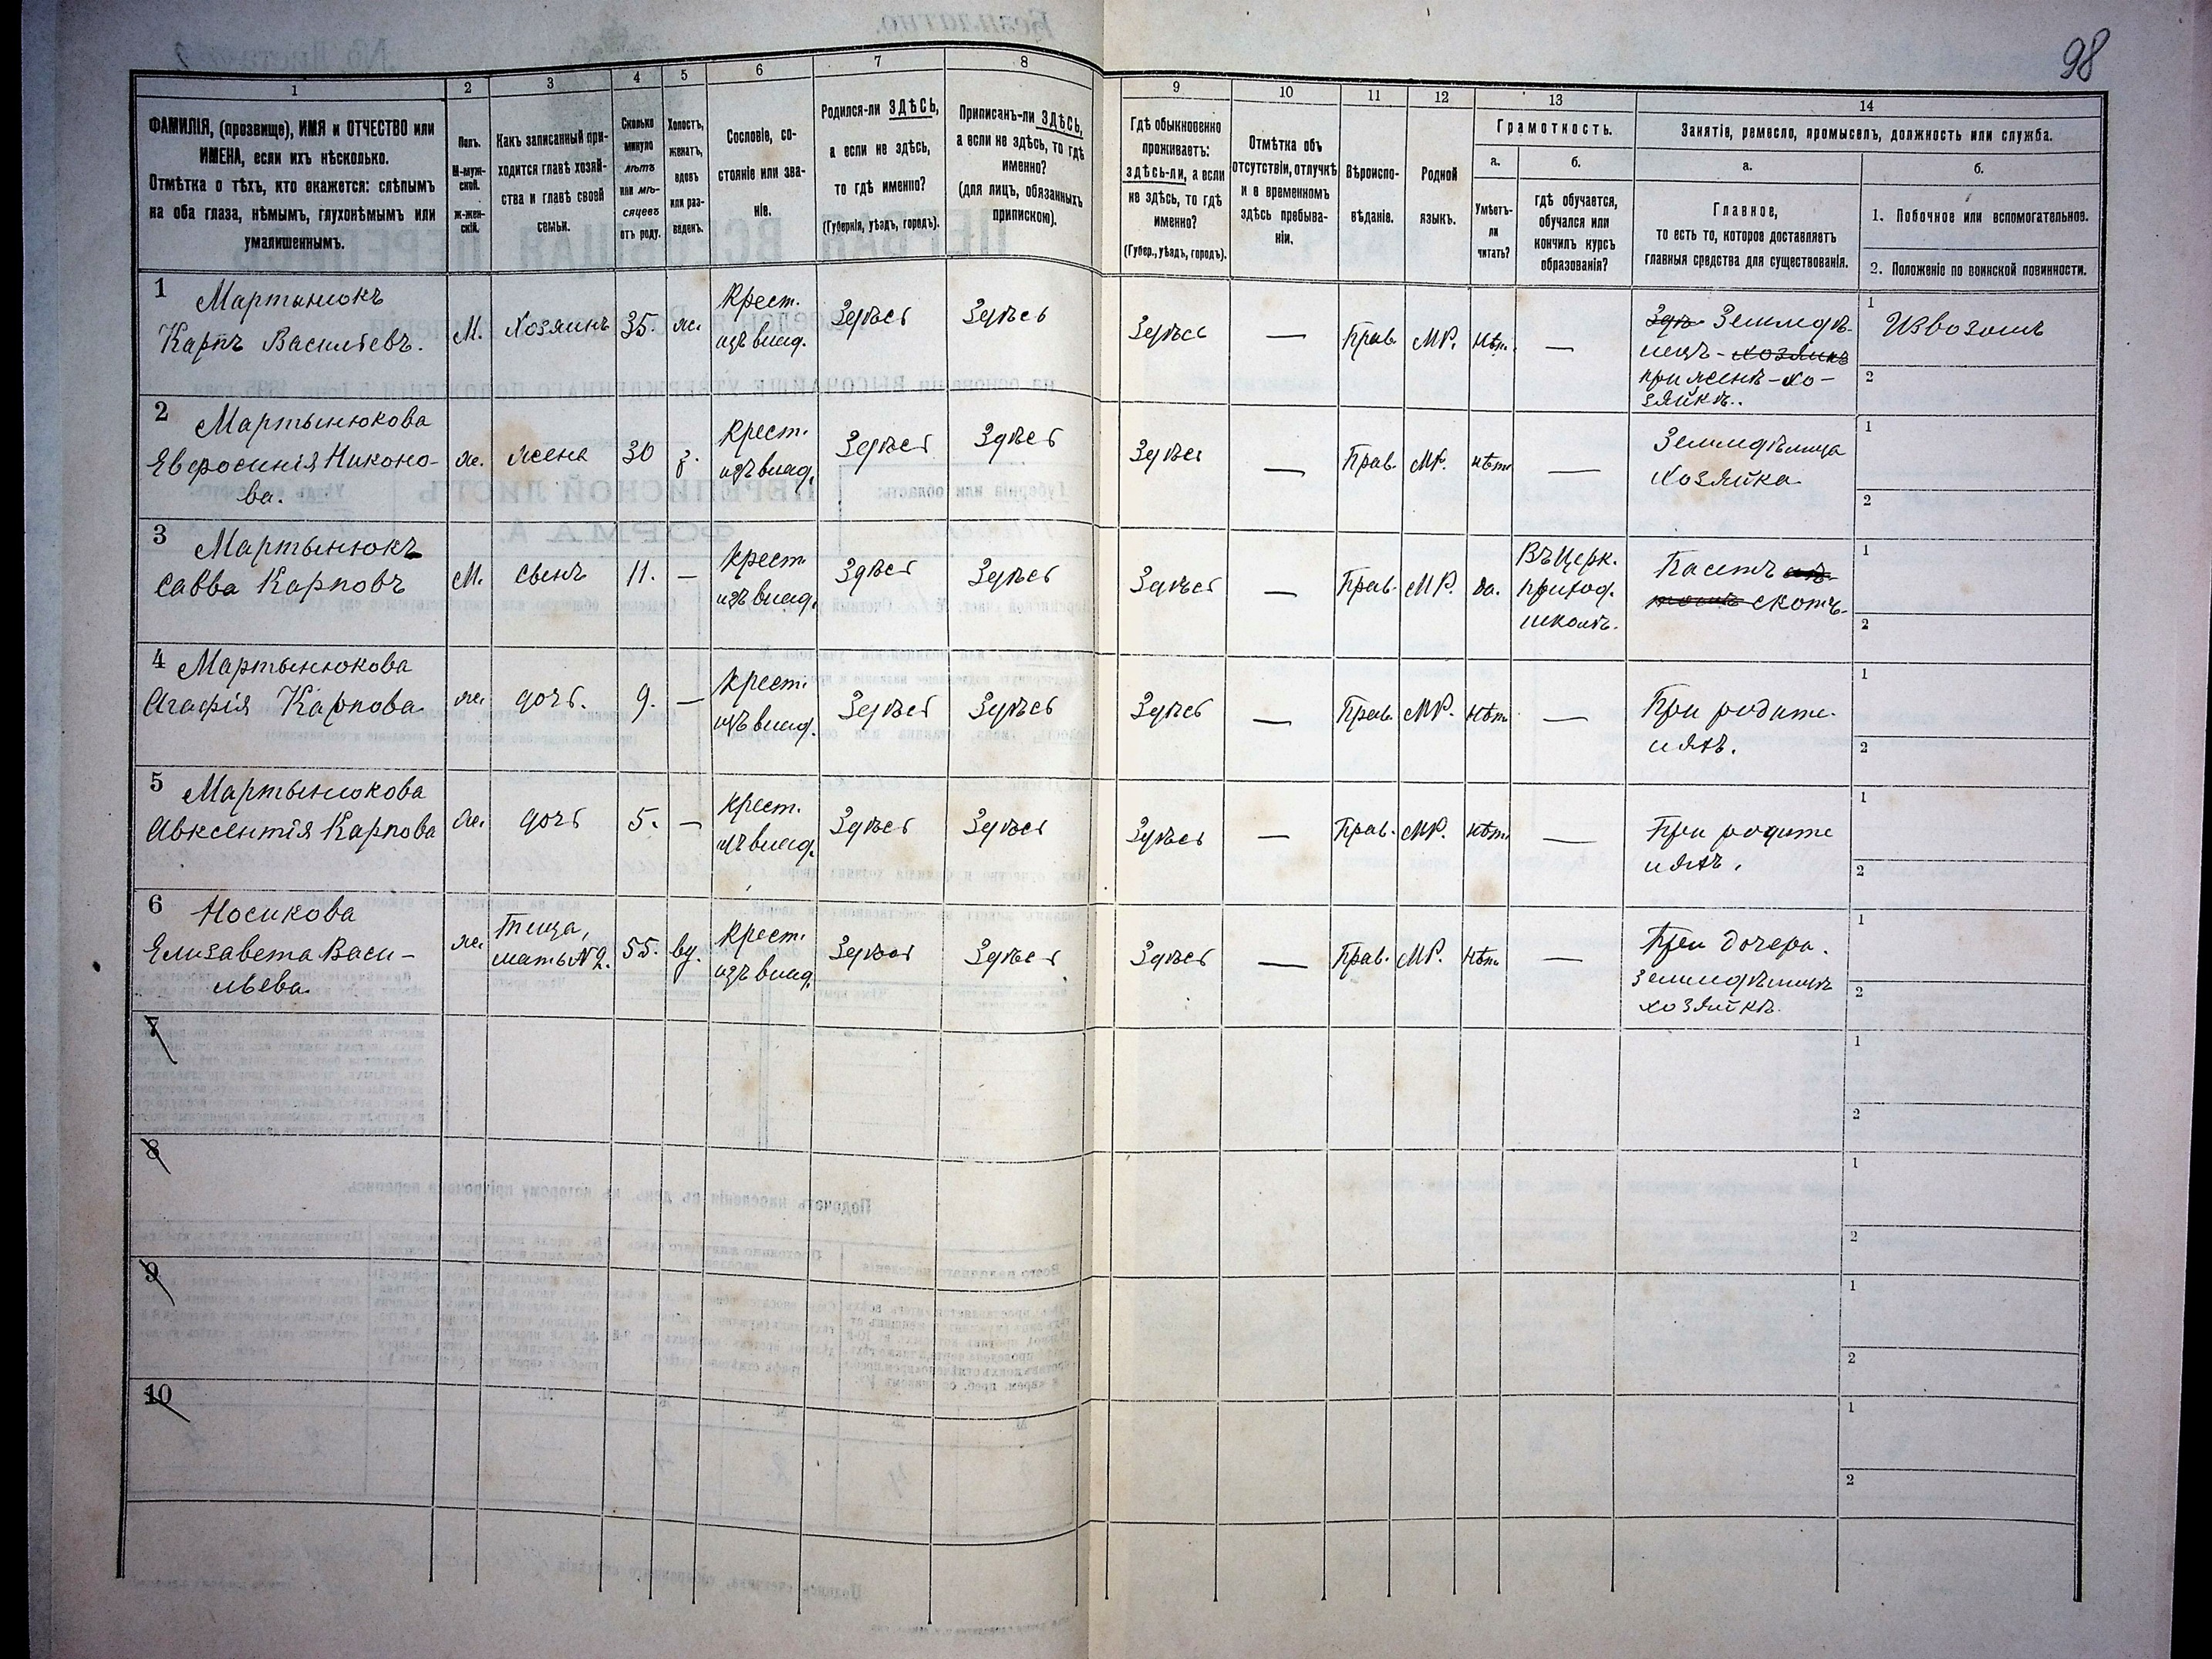 98
1
2
3
4
5
6
7
8
9
10
11
12
13
14
ФАМИЛІЯ, (прозвище), ИМЯ и ОТЧЕСТВО или
ИМЕНА, если ихъ нѣсколько.
Отмѣтка о тѣхъ, кто окажется: слѣпымъ
на оба глаза, нѣмымъ, глухонѣмымъ или
умалишеннымъ.
Полъ.
М-муж-
ской.
ж-жен-
скій.
Какъ записанный при-
ходится главѣ хозяй-
ства и главѣ своей
семьи.
Сколько
минуло
лѣтъ
или мѣ-
сяцевъ
отъ роду.
Холостъ,
женатъ,
вдовъ
или раз-
веденъ.
Сословіе, со-
стояніе или зва-
ніе.
Родился-ли ЗДѢСЬ,
а если не здѣсь,
то гдѣ именно?
(Губернія, уѣздъ, городъ).
Приписанъ-ли ЗДѢСЬ,
а если не здѣсь, то гдѣ
именно?
(для лицъ, обязанныхъ
припискою).
Гдѣ обыкновенно
проживаетъ:
здѣсь-ли, а если
не здѣсь, то гдѣ
именно?
(Губер., уѣздъ, городъ).
Отмѣтка объ
отсутствіи, отлучкѣ
и о временномъ
здѣсь пребыва-
ніи.
Вѣроиспо-
вѣданіе.
Родной
языкъ.
Грамотность.
а.
Умѣетъ-
ли
читать?
б.
гдѣ обучается,
обучался или
кончилъ курсъ
образованія?
Занятіе, ремесло, промыселъ, должность или служба.
а.
Главное,
то есть то, которое доставляетъ
главныя средства для существованія.
б.
1. Побочное или вспомогательное.
2. Положеніе по воинской повинности.
1
Мартынюкъ
Карпъ Васильевъ.
М.
Хозяинъ
35.
ж.
Крест.
изъ влад.
Здѣсь
Здѣсь
Здѣсь
—
Прав.
МР.
нѣт.
—
Здѣ Земледѣ-
лецъ - хозяинъ
при женѣ - хо-
зяйкѣ.
1
Извозомъ
2
2
Мартынюкова
Евфросинія Никоно-
ва.
ж.
жена
30
з.
Крест.
изъ влад.
Здѣсь
Здѣсь
Здѣсь
—
Прав.
МР.
нѣт
—
Земледѣлица
Хозяйка
1
2
3
Мартынюкъ
Савва Карповъ
М.
сынъ
11.
—
Крест
изъ влад.
Здѣсь
Здѣсь
Здѣсь
—
Прав.
МР.
да.
Въ Церк.
приход.
школѣ.
Пасетъ
скотъ.
1
2
4
Мартынюкова
Агафія Карпова
ж.
дочь.
9.
—
Крест.
изъ влад.
Здѣсь
Здѣсь
Здѣсь
—
Прав.
МР.
нѣт
—
При родите-
ляхъ.
1
2
5
Мартынюкова
Авксентія Карпова
ж.
дочь
5.
—
Крест.
изъ влад.
Здѣсь
Здѣсь
Здѣсь
—
Прав.
МР.
нѣт.
—
При родите
ляхъ.
1
2
6
Носикова
Елизавета Васи-
льева
ж.
Теща,
мать №2.
55.
вд.
Крест.
изъ влад.
Здѣсь
Здѣсь
Здѣсь
—
Прав.
МР.
нѣт.
—
При дочери.
земледѣлицѣ
хозяйкѣ.
1
2
7
1
2
8
1
2
9
1
2
10
1
2